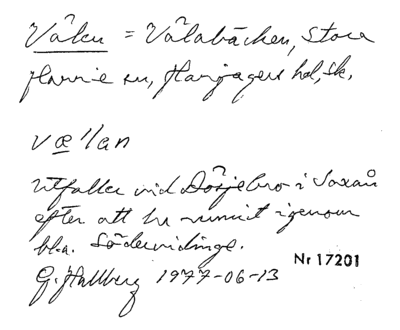 Välen = Välabäcken, Stora
Harrie sn, Harjagers hd, Sk.
væ'lan
Utfaller vid Dösjebro i Saxån
efter att ha runnit igenom
bl.a. Södervidinge.
G. Hallberg 1977-06-13
Nr 17201